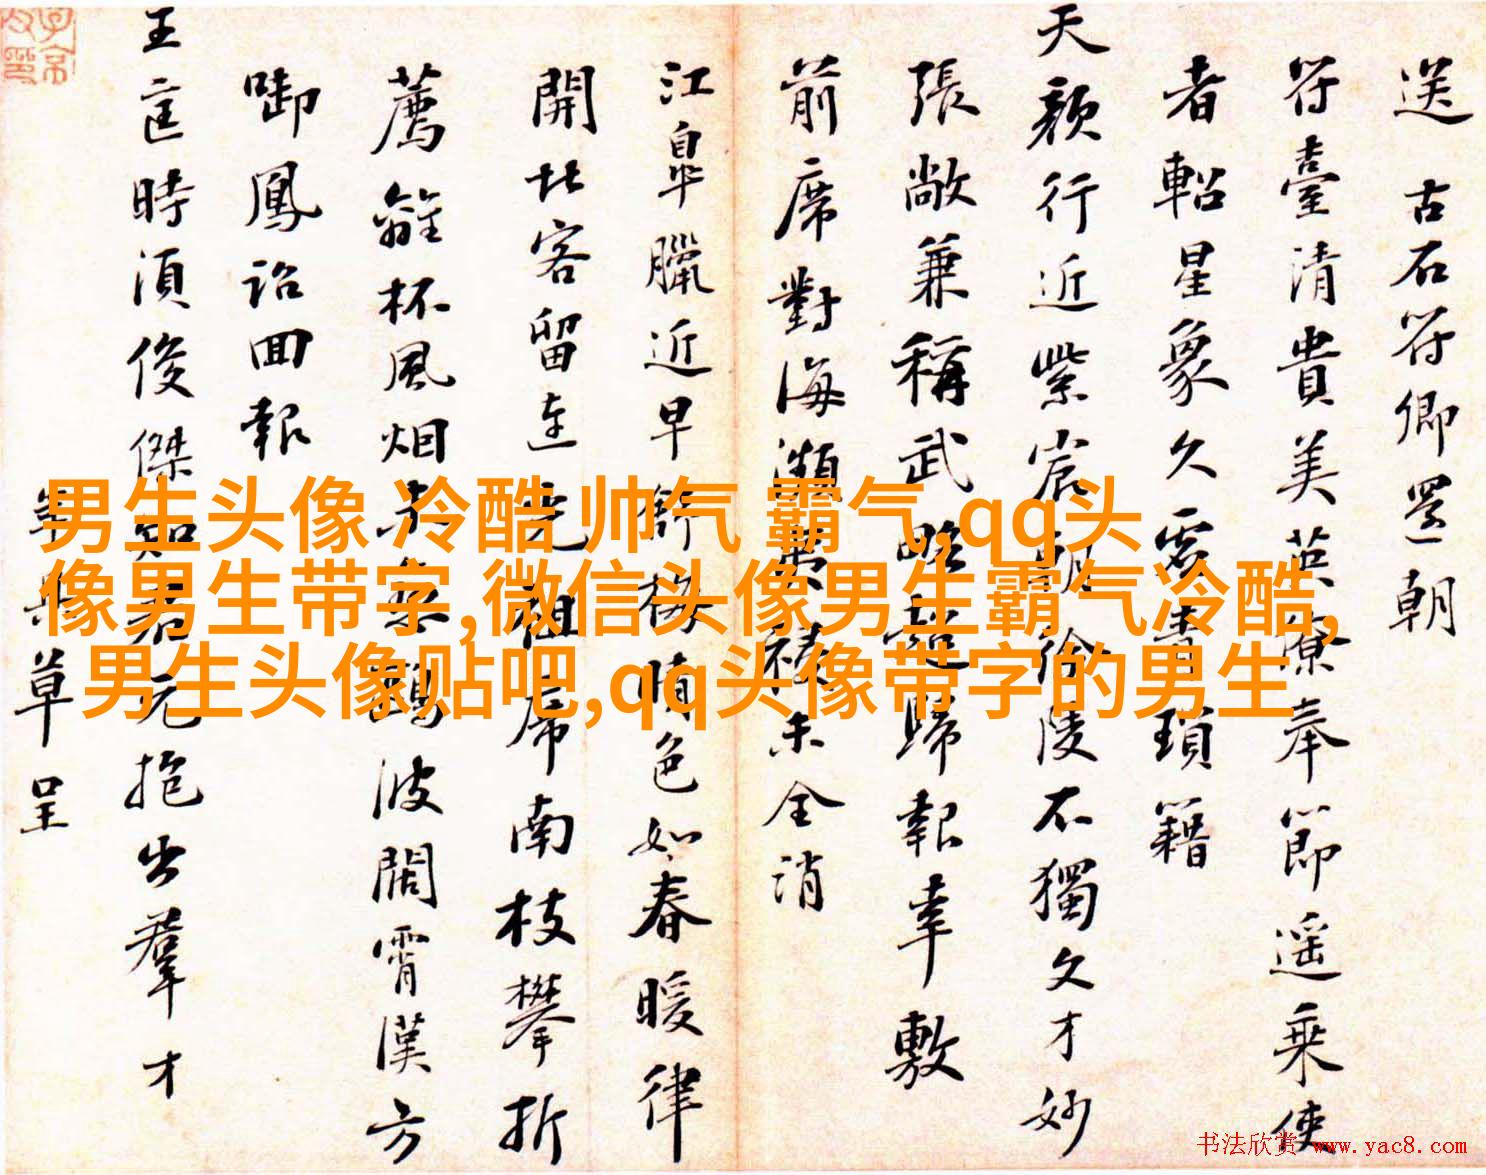 送古石符卿還朝
符臺清貴美英寮奉節遥乘使
者軺星象久青瑣籍
天顔行近紫宸朝陵不獨文才妙
張敞兼稱武略超歸報幸敷
前席對海瀕祲未全消
江臯臘近早舒梅晴色如春暖律
開北客留連祖席南枝攀折
薦離杯風烟鷗波闊霄漢方
啣鳳詔回報
王時須俊傑知君元抱出羣才
年草呈
男生头像 冷酷 帅气 霸气,qq头
像男生带字,微信头像男生霸气冷酷,
男生头像贴吧,qq头像带字的男生
书法欣赏 www.yac8.com